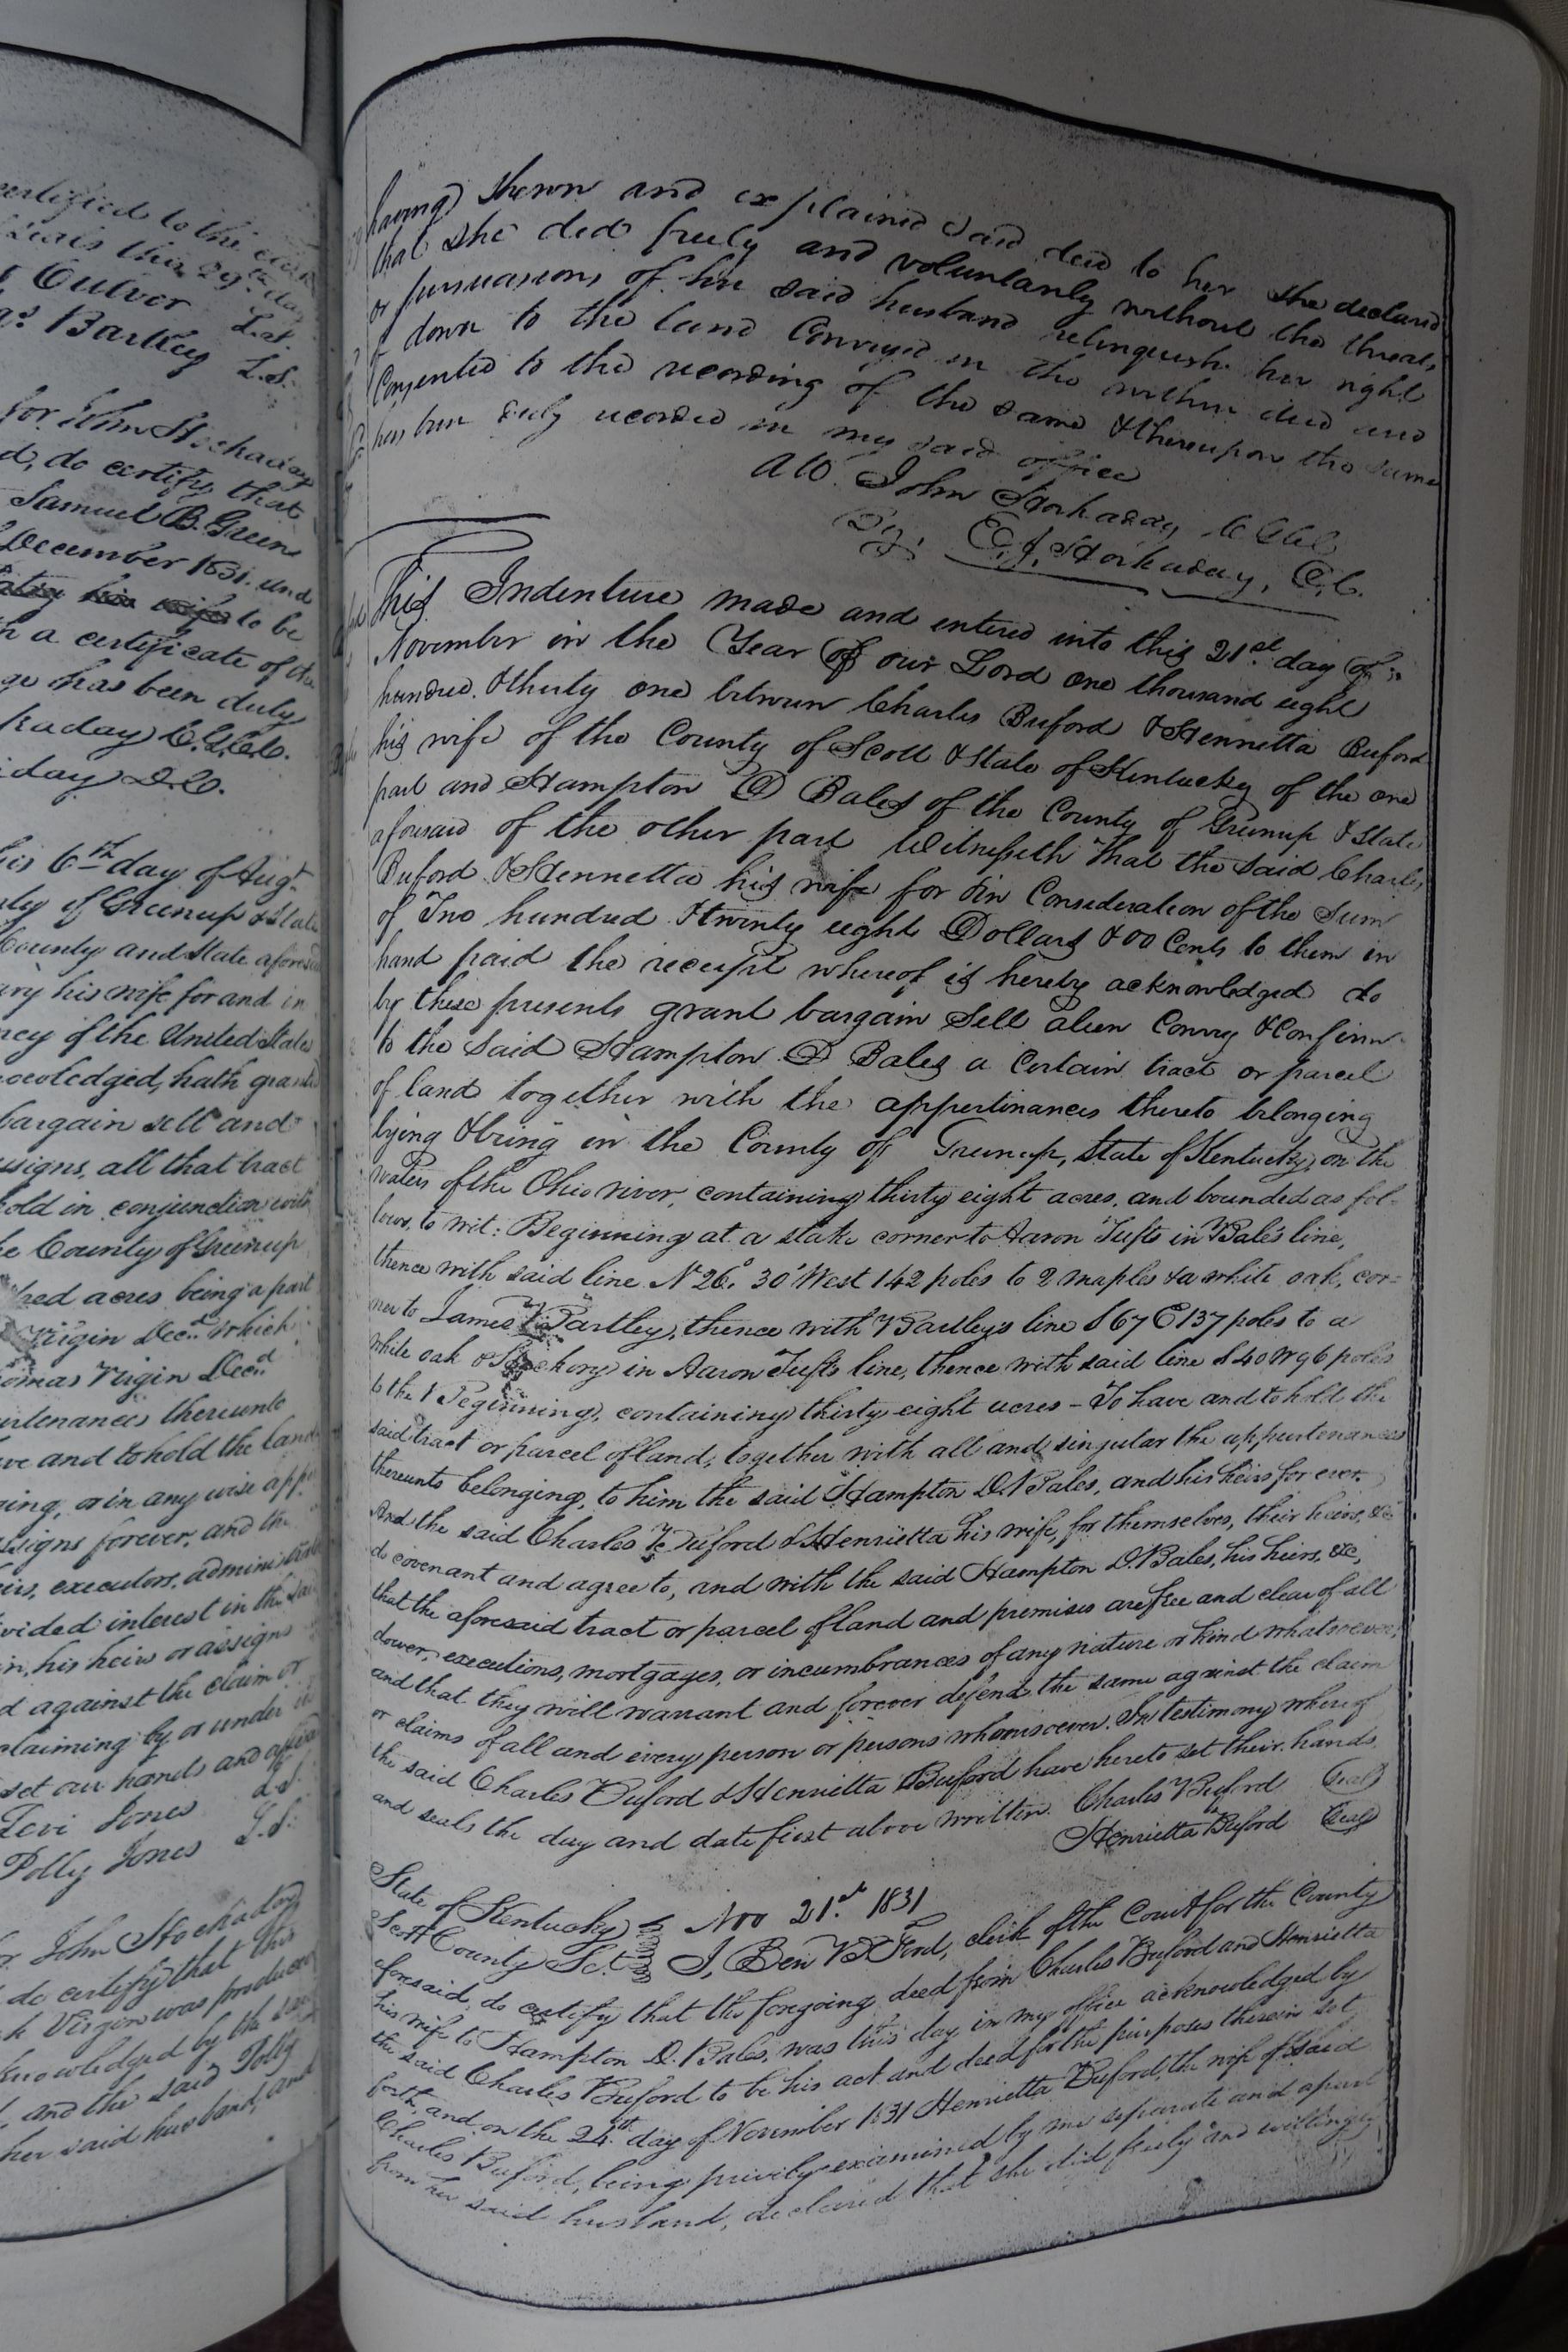 certified to the clerk
Seals this 29th day
Culver L.S.
Bartley L.S.
for John Stockaday
d, do certify that
Samuel B. Green
December 1831. and
to be
h a certificate of the
ge has been duly
kaday C.G.C.C.
day D.C.
his 6th day of Augt.
nty of Greenup & State
County and State aforesaid
ary his wife for and in
ncy of the United States
nowledged, hath granted
bargain sell and
ssigns, all that tract
hold in conjunction with
he County of Greenup
dred acres being a part
Virgin Decd. which
omas Virgin Decd
urtenances thereunto
ve and to hold the land
ging, or in any wise app
ssigns forever, and the
eirs, executors, administra
vided interest in the said
in, his heirs or assigns
d against the claim or
claiming by or under
set our hands and affixed
Levi Jones L.S.
Polly Jones L.S.
John Stockaday
do certify that this
h Virgin was produced
knowledged by the said
, and the said Polly
her said husband, and
having shewn and explained said deed to her she declared
that she did freely and voluntarily without the threats,
or persuasions of her said husband relinquish her right
of dower to the land Conveyed in the within deed and
Consented to the recording of the same & thereupon the same
has been duly recorded in my said office
Att. John Hockaday, C G C C
By, E. J. Hockaday, D.C.
This Indenture made and entered into this 21st. day of
November in the Year of our Lord one thousand eight
hundred & thirty one between Charles Buford & Hennretta Buford
his wife of the County of Scott & State of Kentucky of the one
part and Hampton D Bales of the County of Greenup & State
aforesaid of the other part Witnesseth That the said Charles
Buford & Hennretta his wife for & in Consideration of the Sum
of Two hundred & twenty eight Dollars & 00 Cents to them in
hand paid the receipt whereof is hereby acknowledged do
by these presents grant bargain Sell alien Convey & Confirm
to the Said Hampton D Bales a Certain tract or parcel
of land together with the appertinances thereto belonging
lying & being in the County of Greenup, State of Kentucky, on the
waters of the Ohio river, containing thirty eight acres, and bounded as fol-
lows, to wit: Beginning at a stake corner to Aaron Tufts in Bales line,
thence with said line N 26° 30' West 142 poles to 2 maples & a white oak, cor=
ner to James Bartley, thence with Bartley's line S 67 E 137 poles to a
white oak & Hickory in Aaron Tufts line, thence with said line S 40 W 96 poles
to the Beginning, containing thirty eight acres - To have and to hold the
said tract or parcel of land, together with all and singular the appurtenances
thereunto belonging, to him the said Hampton D. Bales, and his heirs for ever.
And the said Charles Buford & Henrietta his wife, for themselves, their heirs, &c
do covenant and agree to, and with the said Hampton D. Bales, his heirs, &c,
that the aforesaid tract or parcel of land and premises are free and clear of all
dower, executions, mortgages, or incumbrances of any nature or kind whatsoever,
and that they will warrant and forever defend the same against the claim
or claims of all and every person or persons whomsoever. In testimony whereof
the said Charles Buford & Henrietta Buford have hereto set their hands
and seals the day and date first above written. Charles Buford Seal
Henrietta Buford Seal
State of Kentucky Nov 21st. 1831
Scott County Sct. I, Ben B. Ford, clerk of the Court for the County
aforesaid, do certify that the foregoing deed from Charles Buford and Henrietta
his wife to Hampton D. Bales, was this day in my office acknowledged by
the said Charles Buford to be his act and deed for the purposes therein set
forth, and on the 24th day of November 1831 Henrietta Buford, the wife of said
Charles Buford, being privily examined by me separate and apart
from her said husband, declared that she did freely and willingly